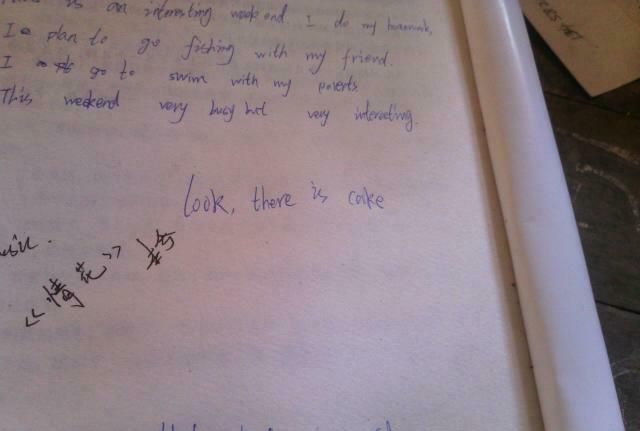 is an interesting weekend I do my homework,
I plan to go fishing with my friend.
I go to swim with my parents
This weekend very busy but very interesting.
look, there is cake
《情花》